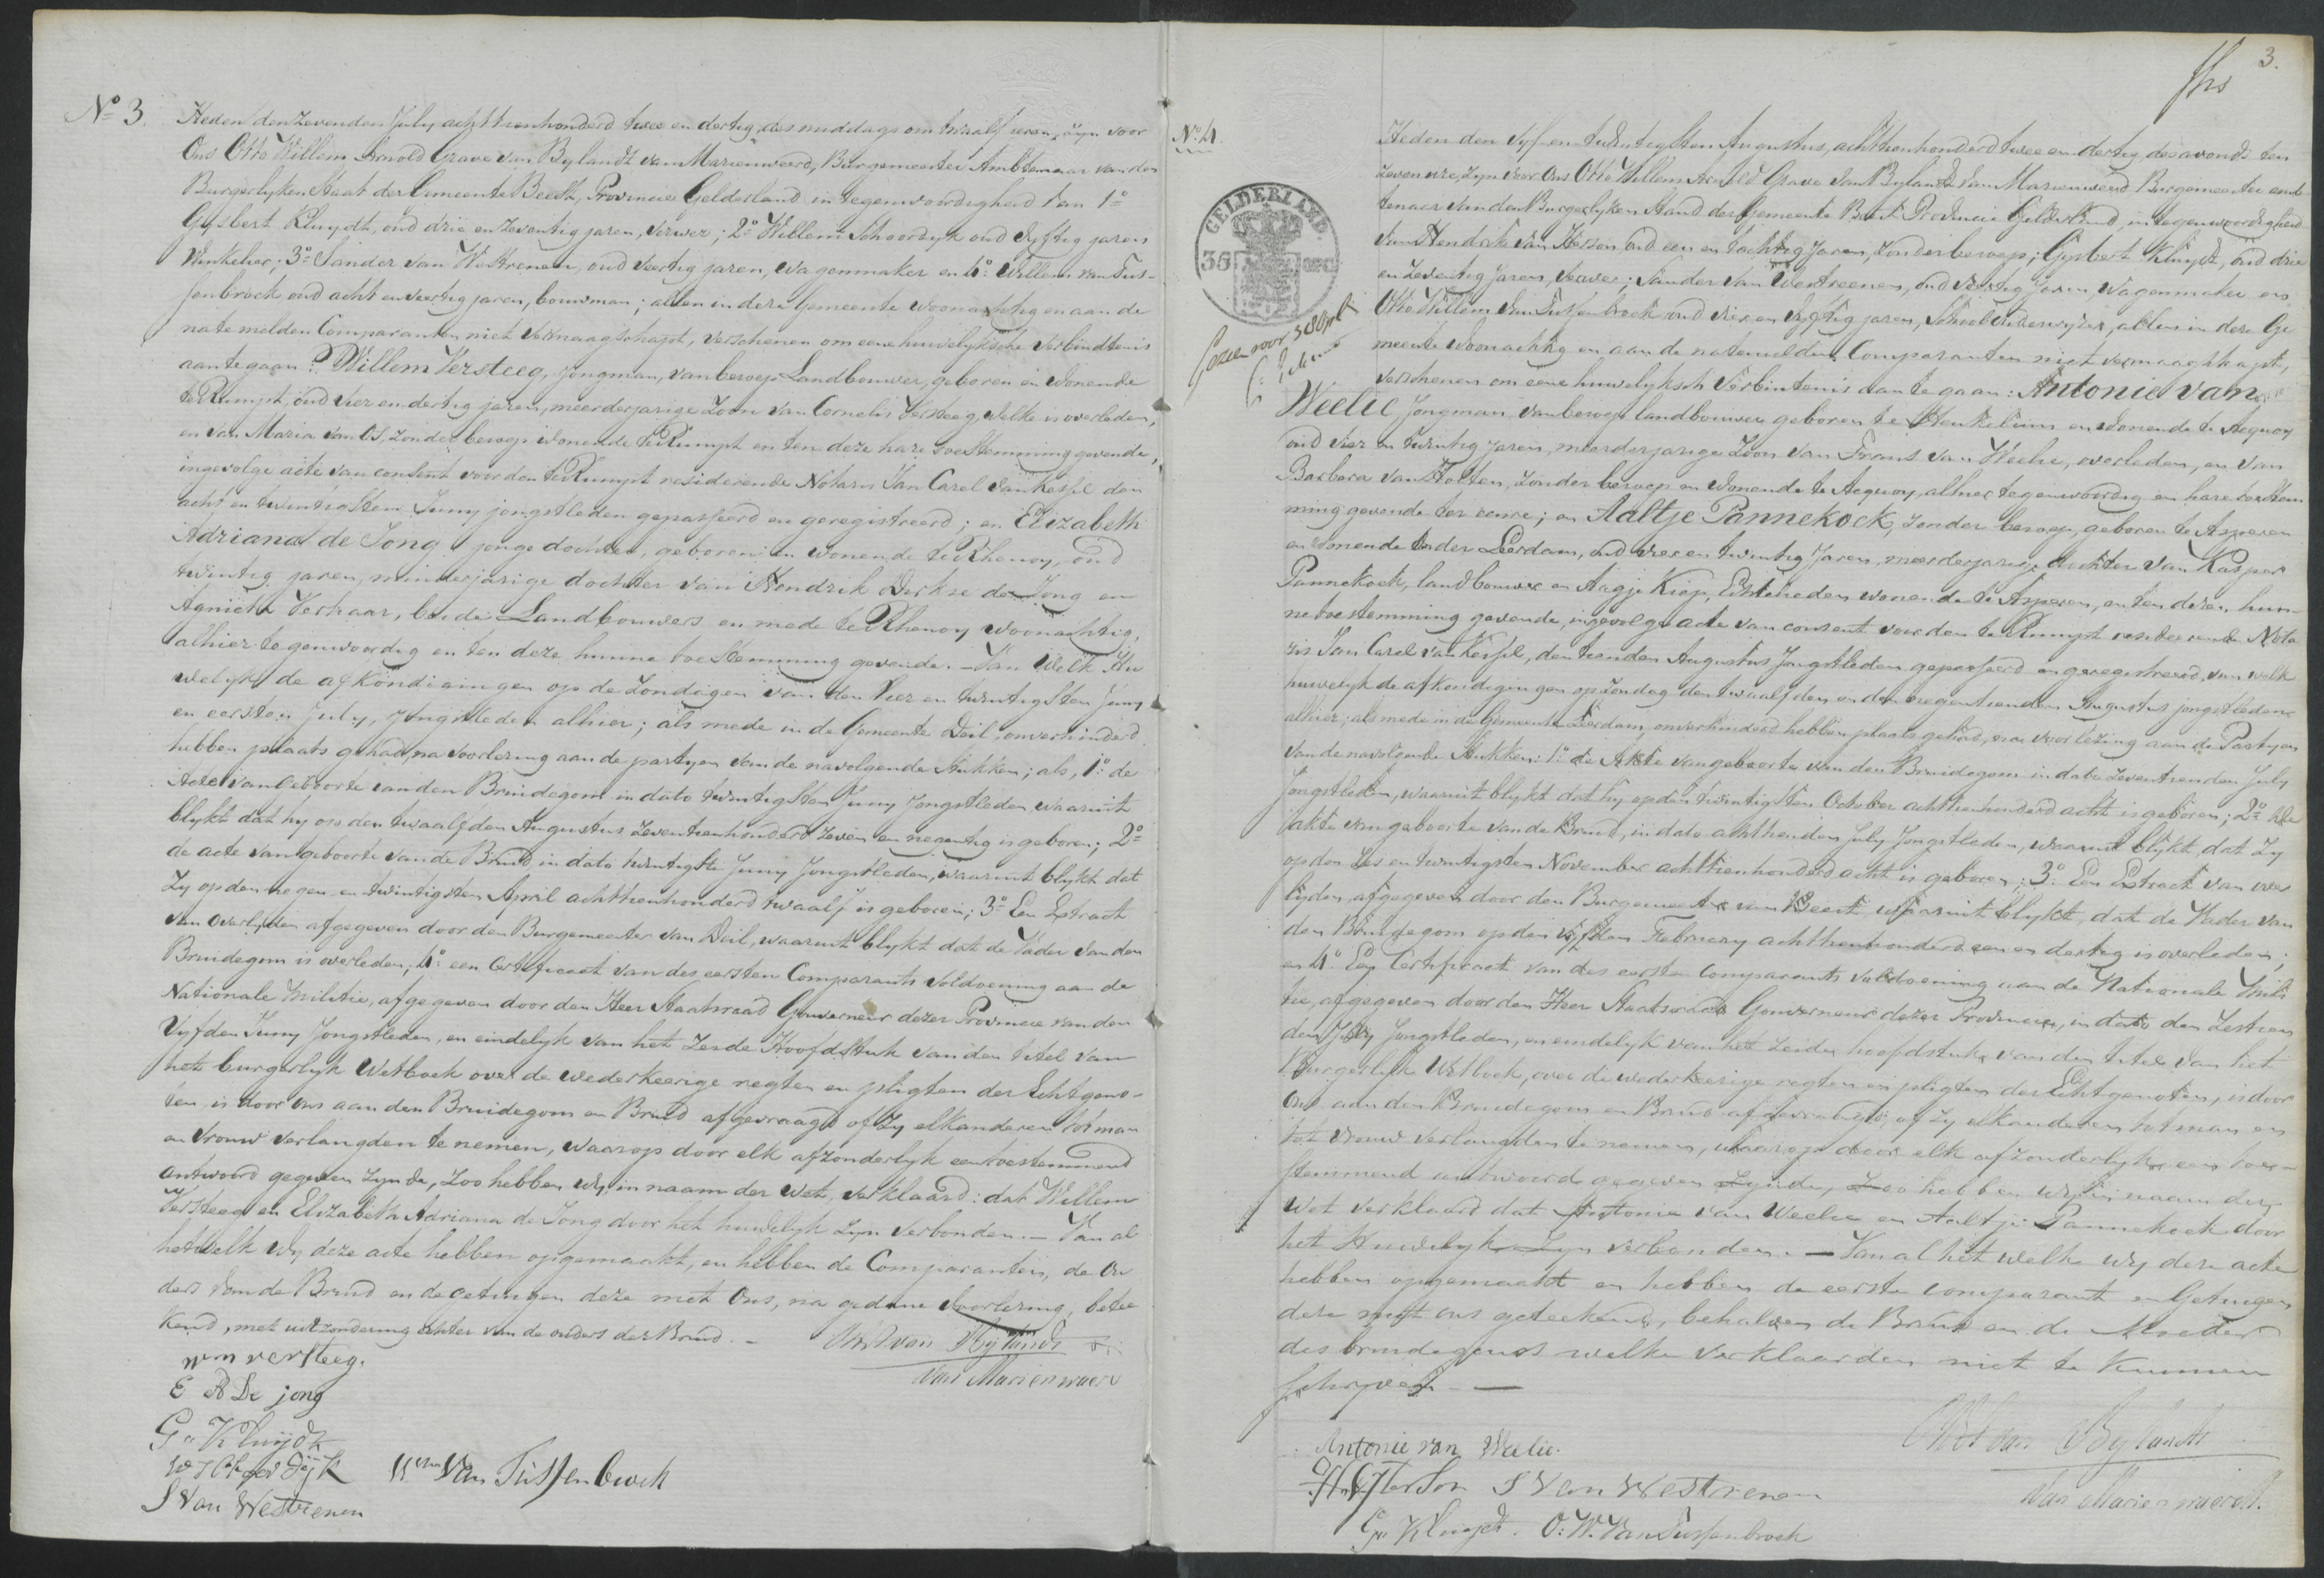 No 3. Heden den zevenden July achttienhonderd twee en dertig, des middags om twaalf uren, zyn voor
Ons Otto Willem Arnold Grave van Bylandt van Marienweerd, Burgemeester Ambtenaar van den
Burgerlyken Staat der Gemeente Beest, Provincie Gelderland in tegenwoordigheid van 1o
Gysbert Kluydt, oud drie en zeventig jaren, Verwer; 2o Willem Schoordyk oud vyftig jaren
Winkelier; 3o Sander van Westrenen, oud veertig jaren, wagenmaker en 4o Willem van Tus-
senbroek oud acht en veertig jaren, bouwman; allen in deze Gemeente woonachtig en aan de
nate melden Comparanten niet vermaagschapt, verschenen om eene huwelyksche verbindtenis
aantegaan: Willem Versteeg, jongman, van beroep Landbouwer, geboren en wonende
te Rumpt, oud vier en dertig jaren, meerderjarige Zoon van Cornelis Versteeg, welke is overleden,
en van Maria van Os, zonder beroep wonende te Rumpt en ten deze hare toestemming gevende,
ingevolge acte van consent voor den te Rumpt residerende Notaris Jan Carel van Kessel den
acht en twintigsten Juny jongstleden gepasseerd en geregistreerd; en Elizabeth
Adriana de Jong jonge dochter, geboren en wonende te Rhenoy, oud
twintig jaren, minderjarige dochter van Hendrik Derkse de Jong en
Agnieta Verhaar, beide Landbouwers en mede te Rhenoy woonachtig,
alhier tegenwoordig en ten deze hunne toestemming gevende. – Van welk Hu
welyk de afkondigingen op de Zondagen van den Vier en twintigsten Juny
en eersten July, jongstleden alhier; als mede in de Gemeente Deil, onverhinderd
hebben plaats gehad, na voorlezing aan de partyen van de navolgende stukken; als, 1o: de
Acte van Geboorte van den Bruidegom in dato twintigsten Juny Jongstleden waaruit
blykt dat hy op den twaalfden Augustus zeventienhonderd zeven en negentig is geboren; 2o
de acte van geboorte van de Bruid in dato twintigste Juny Jongstleden, waaruit blykt dat
Zy op den negen en twintigsten April achttienhonderd twaalf is geboren; 3o Een Extract
van overlyden afgegeven door den Burgemeester van Deil, waaruit blykt dat de Vader van den
Bruidegom is overleden; 4o een Certificaat van des eersten Comparants voldoening aan de
Nationale Militie, afgegeven door den Heer Staatsraad Gouverneur dezer Provincie van den
Vyfden Juny Jongstleden, en eindelyk van het Zesde Hoofdstuk van den titel van
het burgerlyk Wetboek over de wederkeerige regten en pligten der Echtgeno-
ten is door ons aan den Bruidegom en Bruid afgevraagd of Zy elkanderen tot man
en vrouw verlangden te nemen, waarop door elk afzonderlyk een toestemmend
antwoord gegeven zynde, zoo hebben wy in naam der wet, verklaard: dat Willem
Versteeg en Elizabeth Adriana de Jong door het huwelyk zyn verbonden. – Van al
hetwelk wy deze acte hebben opgemaakt, en hebben de Comparanten, de Ou
ders van de Bruid en de getuigen deze met Ons, na gedane voorlezing, getee
kend, met uitzondering echter van de ouders der Bruid. –
van Bylandt
van Marienweerd
wm versteeg.
E A De jong
G. Kluijdt
W Schoordijk Wm Van Tussenbroek
S Van Westrenen
3.
No 4.
GELDERLAND.
35
Gezien voor
Heden den Vyf en twintigsten Augustus, achttienhonderd twee en dertig, des avonds ten
Zeven ure, zyn voor Ons Otto Willem Arnold Grave van Bylandt van Marienweerd Burgemeester amb
tenaar van den Burgerlyken Stand der Gemeente Beest Provincie Gelderland, in tegenwoordigheid
van Hendrik van Herson, oud een en tachtig Jaren, zonder beroep; Gysbert Kluydt, oud drie
en Zeventig Jaren, Verwer; Sander van Westreenen, oud veertig Jaren, Wagenmaker en
Otto Willem van Tussenbroek oud vier en vyftig jaren, Schoolonderwyzer, allen in deze Ge
meente woonachtig en aan de natemelden Comparanten niet vermaagschapt,
verschenen om eene huwelyksch Verbintenis aan te gaan: Antonie van
Weelie, Jongman, van beroep landbouwer geboren te Heukelum en wonende te Acquoy
oud vier en twintig jaren, meerderjarige Zoon van Frans van Weelie, overleden, en van
Barbara van Houten, zonder beroep en wonende te Acquoy, alhier tegenwoordig en hare toestem
ming gevende ter eenre; en Aaltje Pannekoek, zonder beroep, geboren te Asperen
en wonende onder Leerdam, oud vier en twintig Jaren, meerderjarige dochter van Kasper
Pannekoek, landbouwer en Aagje Kiep, Echtelieden wonende te Asperen, en ten dezen hun-
ne toestemming gevende, ingevolge acte van consent voor den te Rumpt resideerende Nota
ris Jan Carel van Kessel, den tienden Augustus Jongstleden gepasseerd en geregistreerd, van welk
huwelyk de afkondigingen op Zondag den twaalfden en den negentienden Augustus jongstleden
alhier; als mede in de Gemeente Leerdam, onverhinderd hebben plaats gehad, na voorlezing aan de Partyen
van de navolgende Stukken: 1o de Akte van geboorte van den Bruidegom in dato zeventienden July
Jongstleden, waaruit blykt dat hy op den twintigsten October achttienhonderd acht is geboren; 2o de
akte van geboorte van de Bruid, in dato achttienden July Jongstleden, waaruit blykt, dat Zy
op den Zes en twintigsten November achttienhonderd acht is geboren; 3o Een Extract van over
lyden, afgegeven door den Burgemeester van Beest, waaruit blykt, dat de Vader van
den Bruidegom op den vyfden February achttienhonderd een en dertig is overleden;
en 4o Een Certificaat van des eersten Comparants voldoening aan de Nationale Mili
tie, afgegeven door den Heer Staatsraad Gouverneur dezer Provincie, in dato den Zestien
den July Jongstleden, en eindelyk van het zesde hoofdstuk van den titel van het
Burgerlyk Wetboek, over de wederkeerige regten en pligten der Echtgenoten, is door
Ons aan den Bruidegom en Bruid afgevraagd, of Zy elkanderen tot man en
tot vrouw verlangden te nemen, waarop door elk afzonderlyk een toe-
stemmend antwoord gegeven Zynde, Zoo hebben wy in naam der
Wet verklaard dat Antonie van Weelie en Aaltje Pannekoek door
het Huwelyk Zyn verbonden. – Van al het welke wy deze acte
hebben opgemaakt en hebben de eerste comparant en Getuigen
deze met ons geteekend, behalven de Bruid en de Moeder
des bruidegoms welke verklaarden niet te kunnen
schryven. –
van Bylandt
van Marienweerd.
Antonie van Weelie.
S Van Westrenen
G. Kluijdt. O. W. Van Tussenbroek